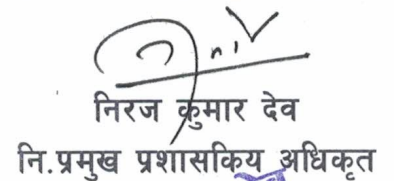 निरज कुमार देव
नि.प्रमुख प्रशासकिय अधिकृत